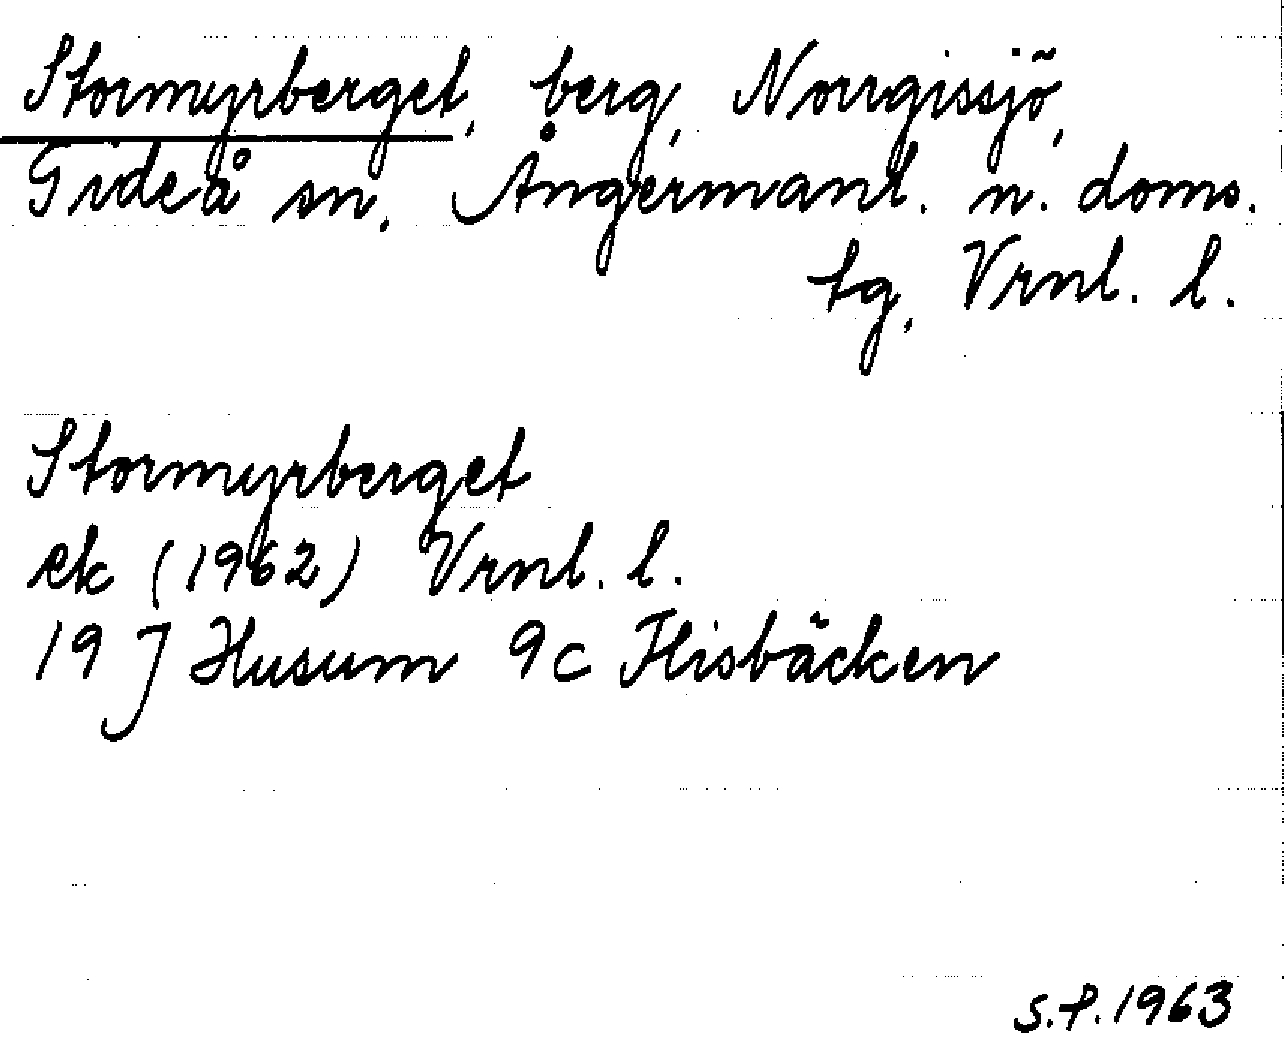 Stormyrberget, berg, Norrgissjö,
Gideå sn. Ångermanl. n. doms.
tg, Vrnl. l.
Stormyrberget
ek (1962) Vrnl. l.
19 J Husum 9c Flisbäcken
S.P. 1963